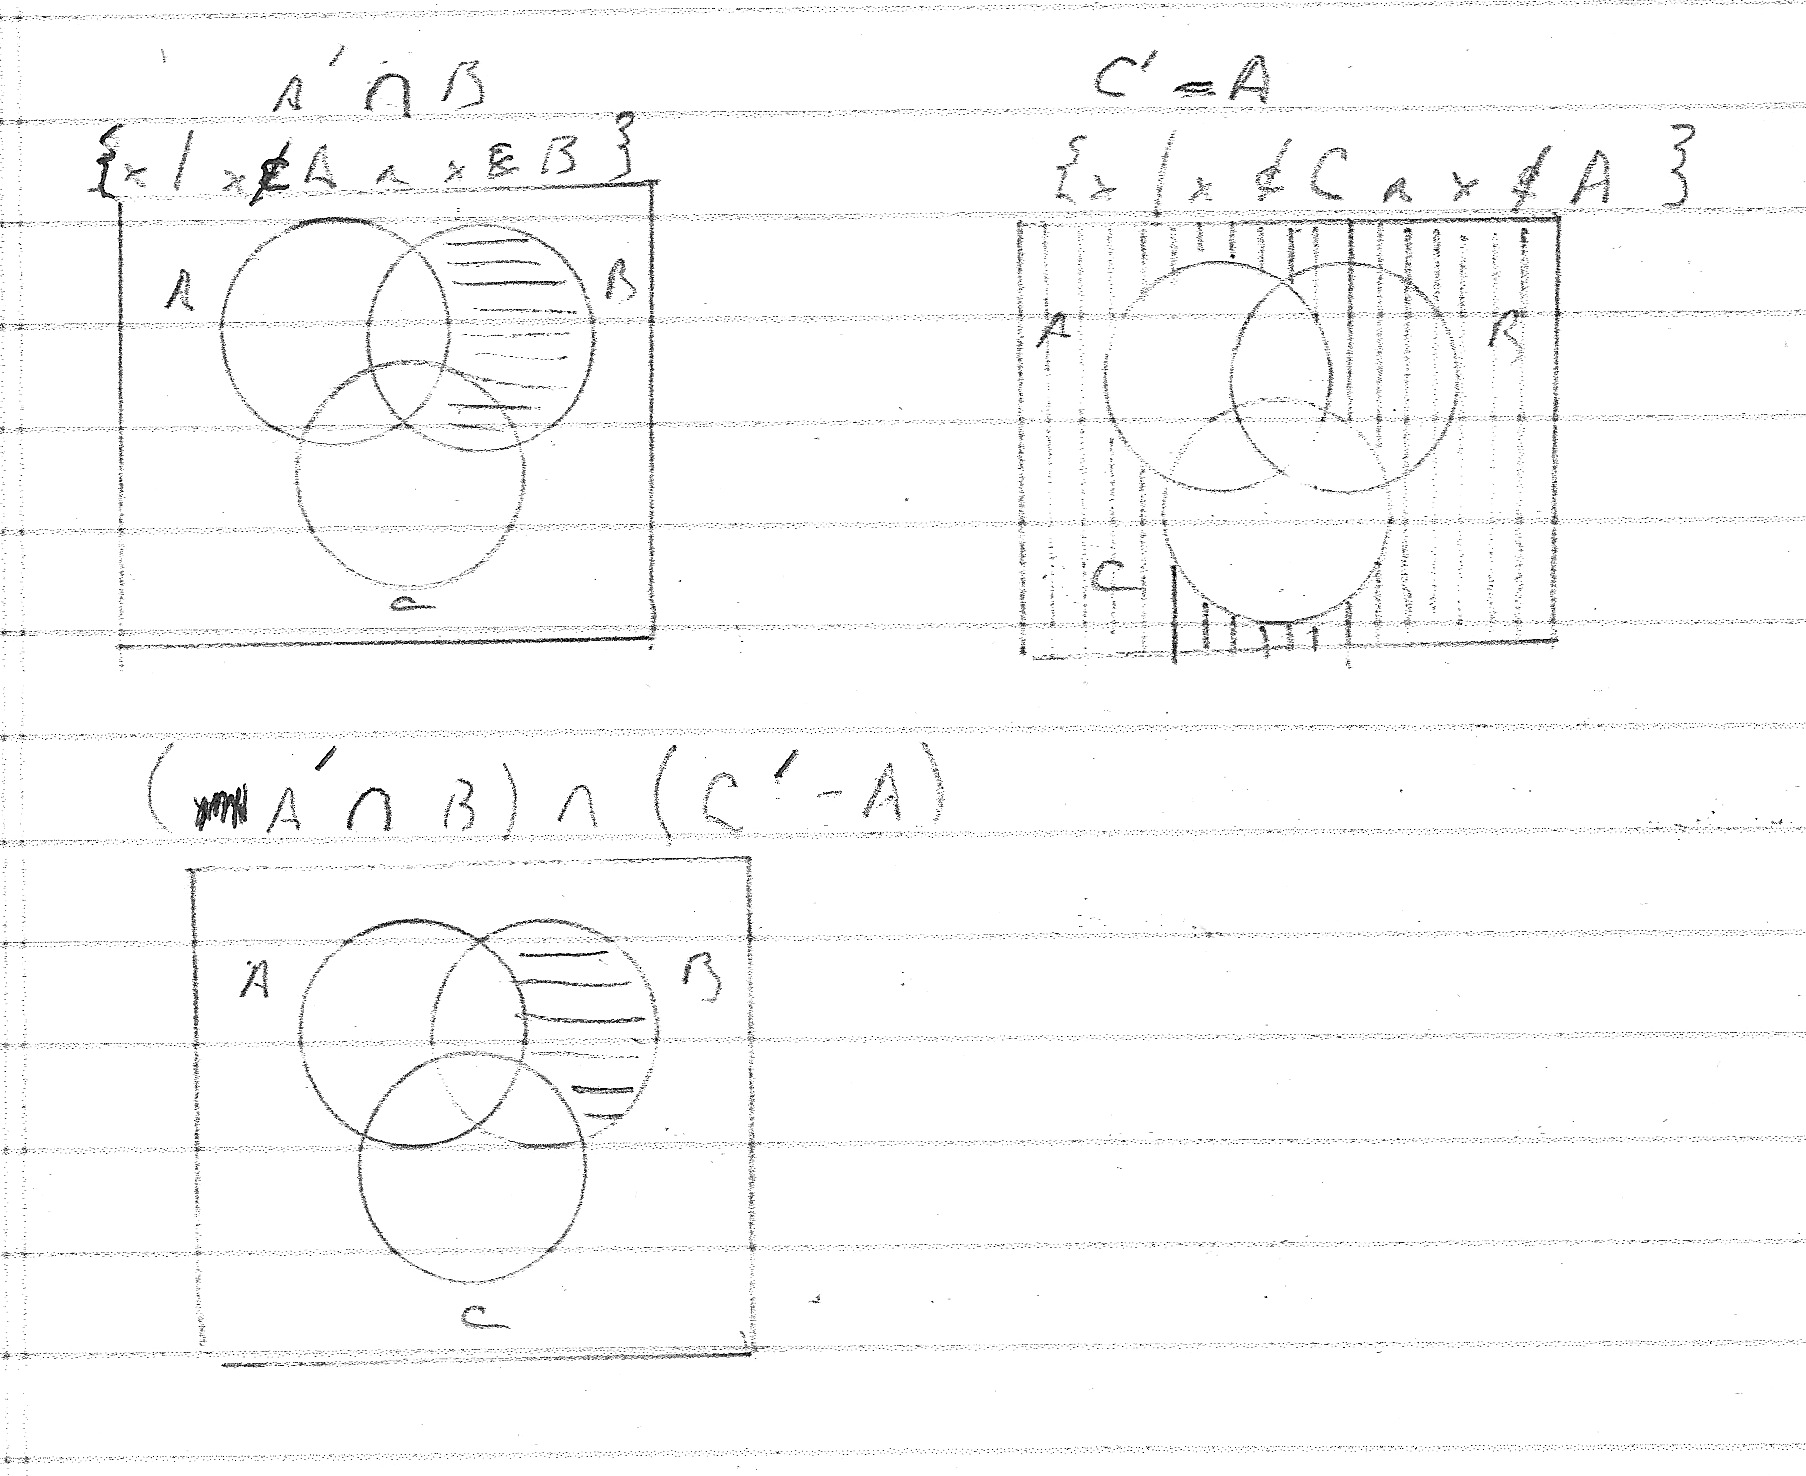 A' ∩ B
{x | x ∉ A ∧ x ∈ B}
A B
C
C' = A
{x | x ∉ C ∧ x ∉ A}
A B
C
(A' ∩ B) ∩ (C' - A)
A B
C